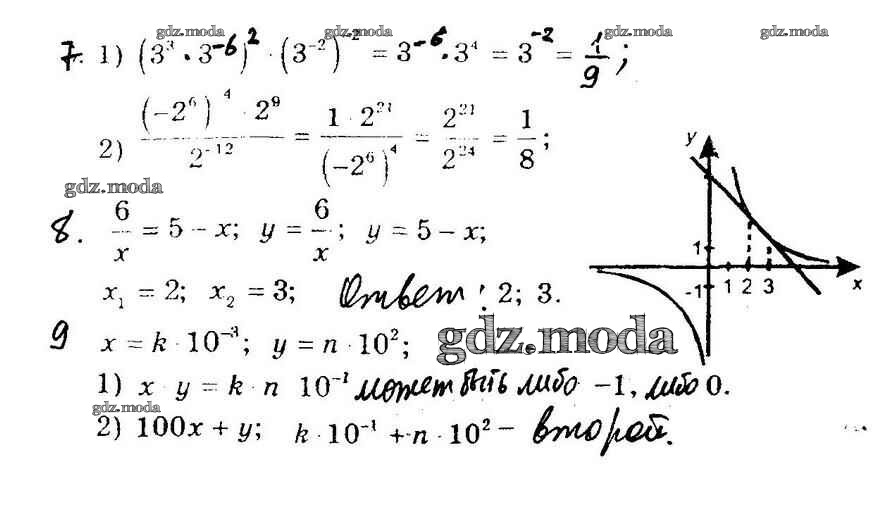 gdz.moda gdz.moda gdz.moda
7. 1) (3³ · 3⁻⁶)² · (3⁻²)⁻² = 3⁻⁶ · 3⁴ = 3⁻² = 1/9;
2) (−2⁶)⁴ · 2⁹ / 2⁻¹² = 1 · 2²¹ / (−2⁶)⁴ = 2²¹ / 2²⁴ = 1/8;
gdz.moda
8. 6/x = 5 − x; y = 6/x; y = 5 − x;
x₁ = 2; x₂ = 3; Ответ: 2; 3.
y
1
-1 1 2 3 x
9 x = k · 10⁻³; y = n · 10²;
gdz.moda
1) x y = k · n 10⁻¹ может быть либо −1, либо 0.
gdz.moda
2) 100x + y; k · 10⁻¹ + n · 10² − второй.